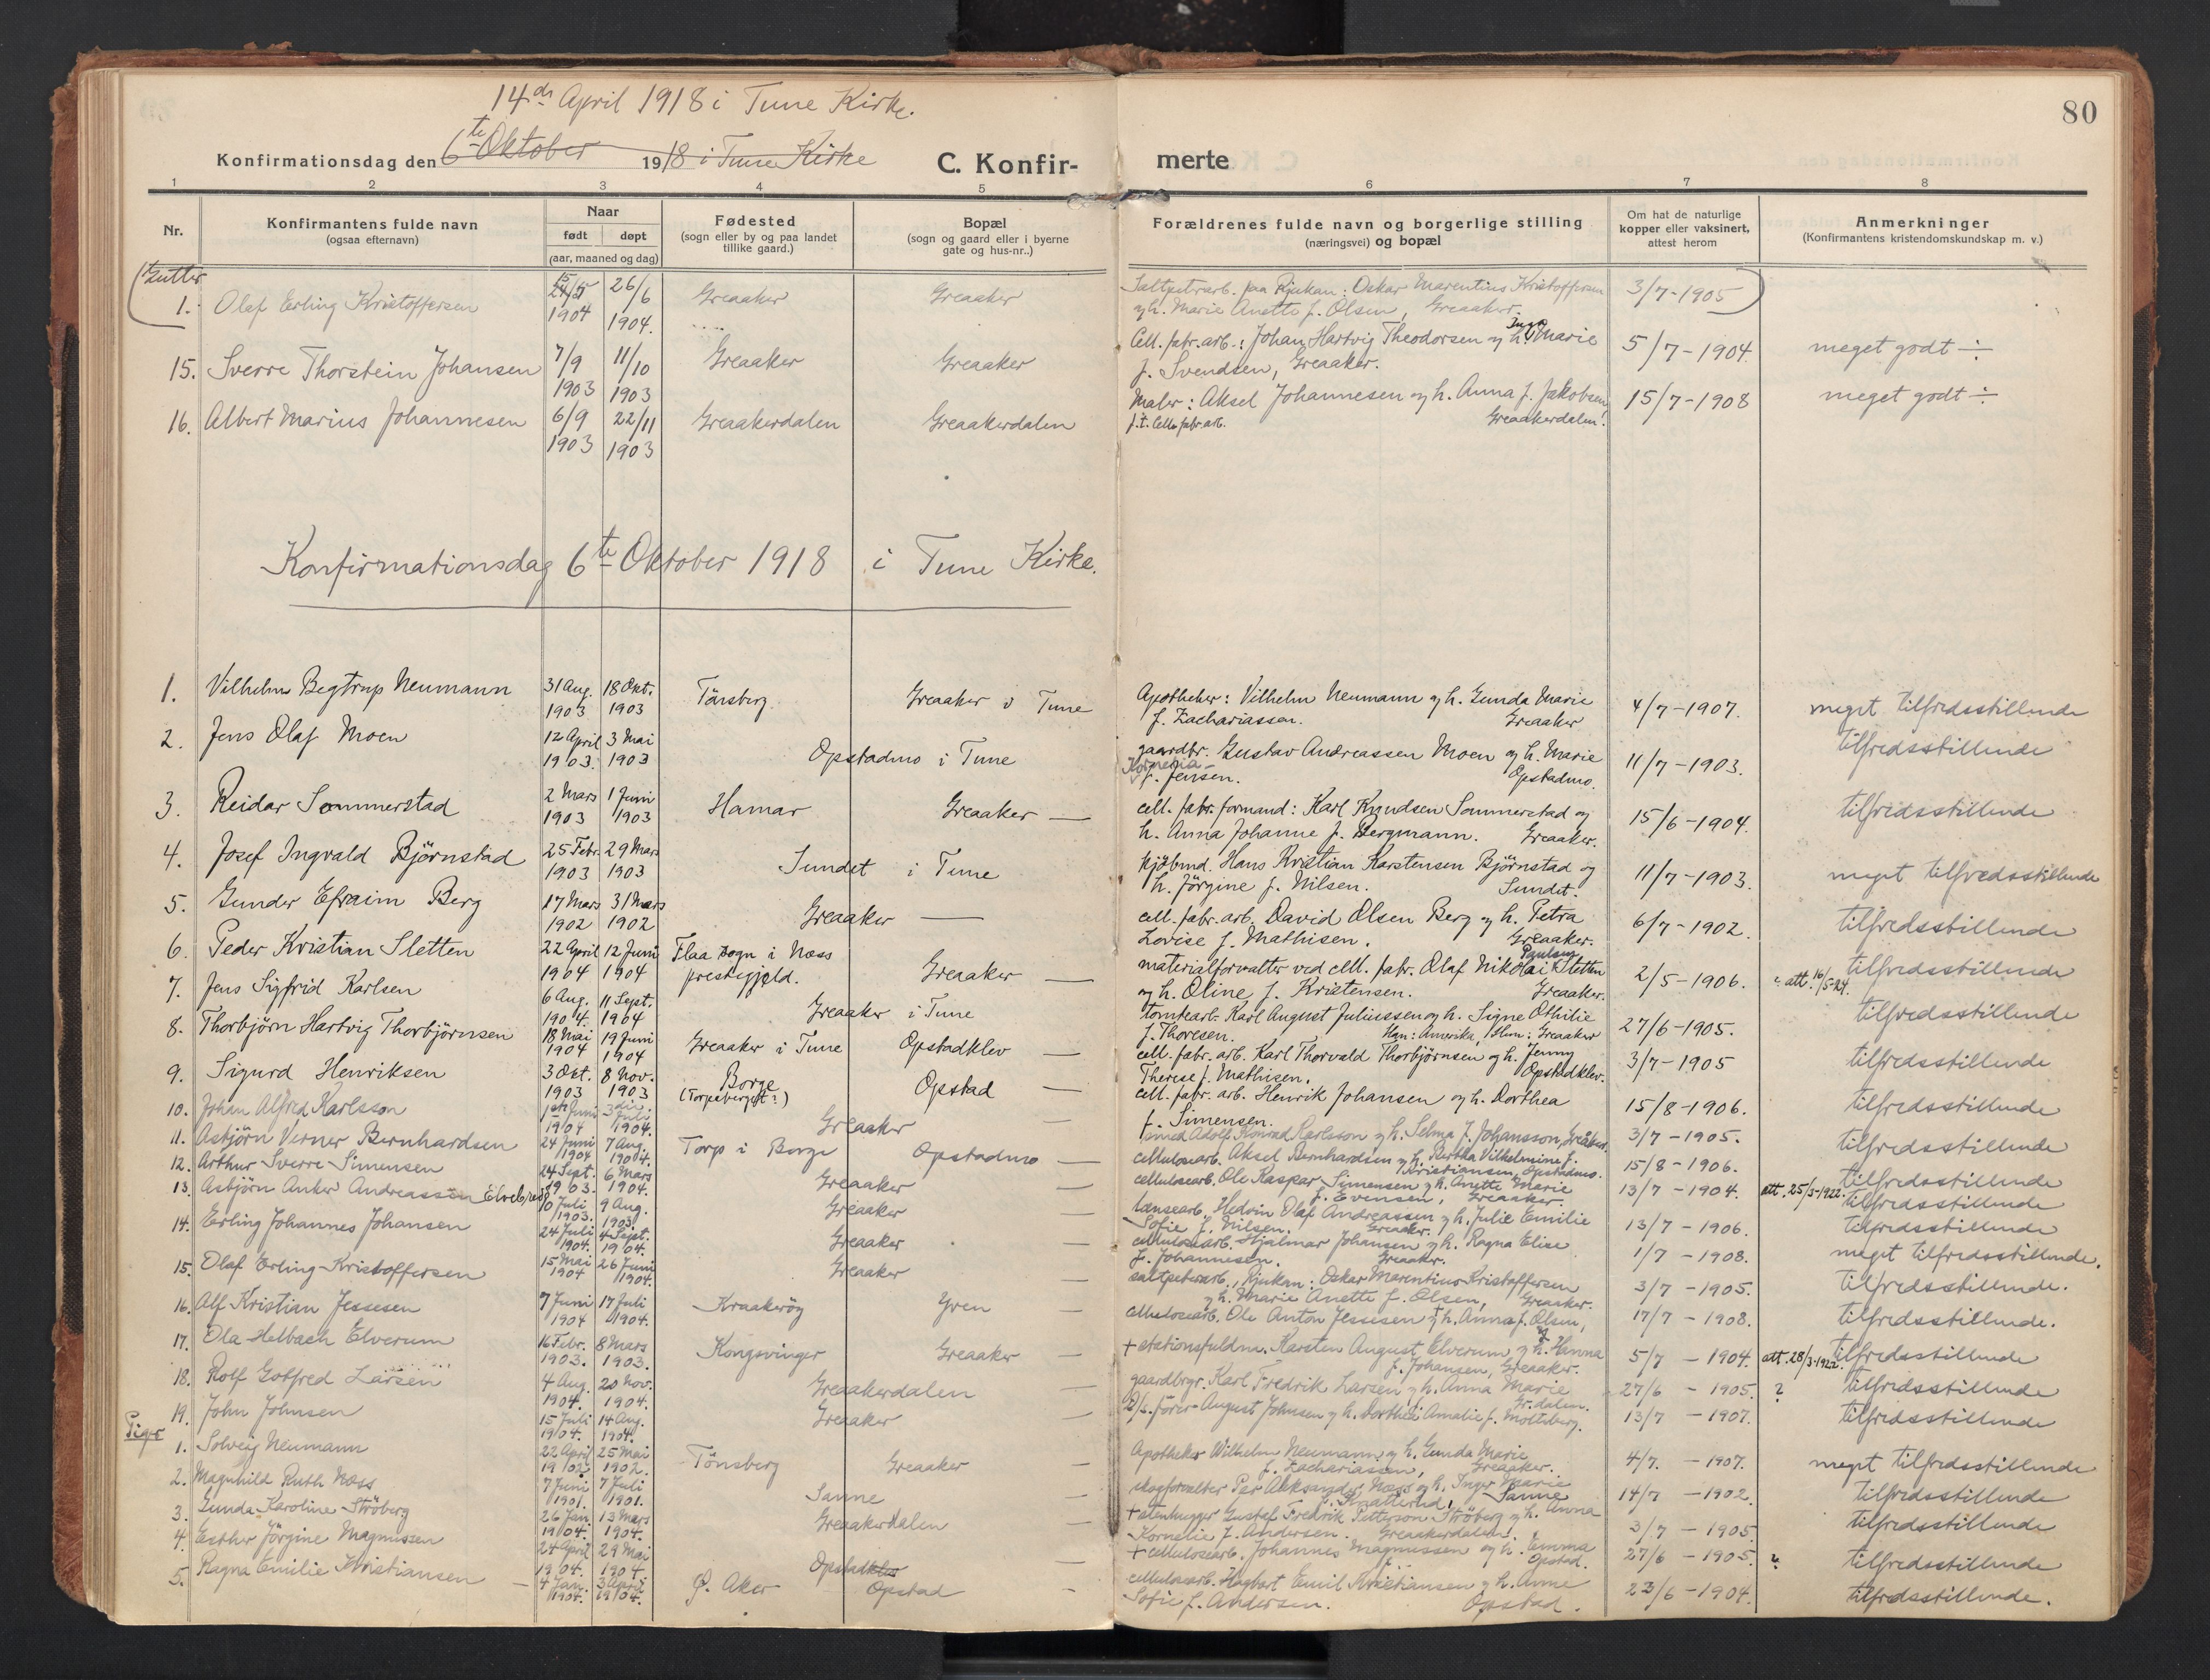 80
14de April 1918 i Tune Kirke.
Konfirmationsdag den 6te Oktober 1918 i Tune Kirke
C. Konfirmerte
1 2 3 4 5 6 7 8
Nr.
Konfirmantens fulde navn (ogsaa efternavn)
Naar født døpt (aar, maaned og dag)
Fødested (sogn eller by og paa landet tillike gaard.)
Bopæl (sogn og gaard eller i byerne gate og hus-nr..)
Forældrenes fulde navn og borgerlige stilling (næringsvei) og bopæl
Om hat de naturlige kopper eller vaksinert, attest herom
Anmerkninger (Konfirmantens kristendomskundskap m. v.)
Gutter
1. Olaf Erling Kristoffersen 15/5 1904 26/6 1904. Greaaker Greaaker Saltpetrarb. paa Rjukan: Oskar Marentius Kristoffersen 3/7-1905
og h. Marie Anette f. Olsen, Greaaker.
15. Sverre Thorstein Johansen 7/9 1903 11/10 1903 Greaaker Greaaker Cell. fabr. arb.: Johan Hartvig Theodorsen og h. Inga Marie 5/7-1904. meget godt ÷
f. Svendsen, Greaaker.
16. Albert Marius Johannesen 6/9 1903 22/11 1903 Greaakerdalen Greaakerdalen Maler: Aksel Johannesen og h. Anna f. Jakobsen 15/7-1908 meget godt ÷
f.t. Cell. fabr. arb. Greaakerdalen.
Konfirmationsdag 6te Oktober 1918 i Tune Kirke.
1. Vilhelm Begtrup Neumann 31 Aug. 1903 18 Okt. 1903 Tønsberg. Greaaker i Tune Apotheker: Vilhelm Neumann og h. Gunda Marie 4/7-1907. meget tilfredsstillende
f. Zachariassen. Greaaker
2. Jens Olaf Moen 12 April 1903. 3 Mai 1903 Opstadmo i Tune gaardbr. Gustav Andreassen Moen og h. Marie 11/7-1903. tilfredsstillende
Kornelia f. Jensen. Opstadmo.
3. Reidar Sommerstad 2 Mars 1903 1 Juni 1903 Hamar Greaaker — cell. fabr. formand: Karl Knudsen Sommerstad og 15/6-1904. tilfredsstillende
h. Anna Johanne f. Bergmann. Greaaker.
4. Josef Ingvald Björnstad 25 Febr. 1903 29 Mars 1903 Sundet i Tune kjøbmd. Hans Kristian Karstensen Björnstad og 11/7-1903. meget tilfredsstillende
h. Jörgine f. Nilsen. Sundet.
5. Gunder Efraim Berg 17 Mars 1902 31 Mars 1902 Greaaker — cell. fabr. arb. David Olsen Berg og h. Petra 6/7-1902. tilfredsstillende
Lovise f. Mathisen. Greaaker.
6. Peder Kristian Sletten 22 April 1904 12 Juni 1904 Flaa sogn i Næss prestegjeld. Greaaker — materialforvalter ved cell. fabr. Olaf Nikolai Paulsen Sletten 2/5-1906. att. 16/5-24. tilfredsstillende
og h. Oline f. Kristensen. Greaaker.
7. Jens Sigfrid Karlsen 6 Aug. 1904. 11 Sept. 1904 Greaaker i Tune tomtearb. Karl August Juliussen og h. Signe Othilie 27/6-1905. tilfredsstillende
f. Thoresen. Han: Amerika, Hun: Greaaker
8. Thorbjörn Hartvig Thorbjörnsen 18 Mai 1904 19 Juni 1904 Greaaker i Tune Opstadklev — cell. fabr. arb. Karl Thorvald Thorbjörnsen og h. Jenny 3/7-1905 tilfredsstillende
Therese f. Mathisen. Opstadklev.
9. Sigurd Henriksen 3 Okt. 1903 8 Nov. 1903 Borge (Torpeberget?) Opstad — cell. fabr. arb. Henrik Johansen og h. Dorthea 15/8-1906. tilfredsstillende
f. Simensen.
10. Johan Alfred Karlsson 1ste Juni 1904 3die Juli 1904. Greaaker — Adolf Konrad Karlsson og h. Selma f. Johansson, Greåker. 3/7-1905. tilfredsstillende
11. Asbjörn Verner Bernhardsen 24 Juni 1904 7 Aug. 1904. Torp i Borge Opstadmo — cellulosearb. Aksel Bernhardsen og h. Bertha Vilhelmine f. 15/8-1906. tilfredsstillende
Kristiansen, Opstadmo.
12. Arthur Sverre Simensen 24 Sept. 1903. 6 Mars 1904. Greaaker — cellulosearb. Ole Kaspar Simensen og h. Anette Marie 13/7-1904. att. 25/3-1922. tilfredsstillende
f. Evensen, Greaaker.
13. Asbjörn Anker Andreassen Elvebred 10 Juli 1903. 9 Aug. 1903 Greaaker — lensearb. Hedvin Olaf Andreassen og h. Julie Emilie 13/7-1906. tilfredsstillende
Sofie f. Nilsen. Greaaker.
14. Erling Johannes Johansen 24 Juli 1904. 4 Sept. 1904. Greaaker cellulosearb. Hjalmar Johansen og h. Ragna Elise 1/7-1908. meget tilfredsstillende.
f. Johannesen. Greaaker.
15. Olaf Erling Kristoffersen 15 Mai 1904 26 Juni 1904. Greaaker — saltpeterarb., Rjukan: Oskar Marentius Kristoffersen 3/7-1905. Tilfredsstillende.
og h. Marie Anette f. Olsen, Greaaker.
16. Alf Kristian Jessesen 7 Juni 1904 17 Juli 1904. Kraakerøy Yven — cellulosearb. Ole Anton Jessesen og h. Anna f. Olsen, 17/7-1908. tilfredsstillende.
17. Ola Helbæch Elverum 16 Febr. 1903. 8 Mars 1903. Kongsvinger Greaaker — + stationsfuldm. Karsten August Elverum og h. Hanna 5/7-1904. att. 28/3-1922. tilfredsstillende
f. Johansen, Greaaker.
18. Rolf Gotfred Larsen 4 Aug. 1904. 20 Nov. 1904. Greaakerdalen — gaardbrgr. Karl Fredrik Larsen og h. Anna Marie 27/6-1905. ? tilfredsstillende
Gr.dalen.
19. John Johnsen 15 Juli 1904. 14 Aug. 1904. Greaaker — D/s. fører August Johnsen og h. Dorthea Amalie f. Moltzberg. 13/7-1907. tilfredsstillende
Piger
1. Solveig Neumann 22 April 1902 25 Mai 1902. Tönsberg Greaaker — Apotheker Wilhelm Neumann og h. Gunda Marie 4/7.-1907. meget tilfredsstillende
f. Zachariassen, Greaaker.
2. Magnhild Ruth Næss 7 Juni 1901. 7 Juli 1901. Sanne — skogforvalter Per Aleksander Næss og h. Inger Marie 14/7-1902. tilfredsstillende
Sanne
3. Gunda Karoline Ströberg 26 Jan. 1904. 13 Mars 1904. Greaakerdalen — + stenhugger Gustaf Fredrik Petterson Ströberg og h. Anna 3/7-1905 tilfredsstillende
Kornelie f. Andersen. Greaakerdalen.
4. Esther Jörgine Magnussen 24 April 1904. 29 Mai 1904 Opstad — + cellulosearb. Johannes Magnussen og h. Emma 27/6-1905. ? tilfredsstillende
f. Opstad.
5. Ragna Emilie Kristiansen 4 Jan. 1904. 3 April 1904. Ø. Aker Opstad — cellulosearb. Hagbart Emil Kristiansen og h. Anne 23/6-1904. tilfredsstillende.
Sofie f. Andersen. Opstad.